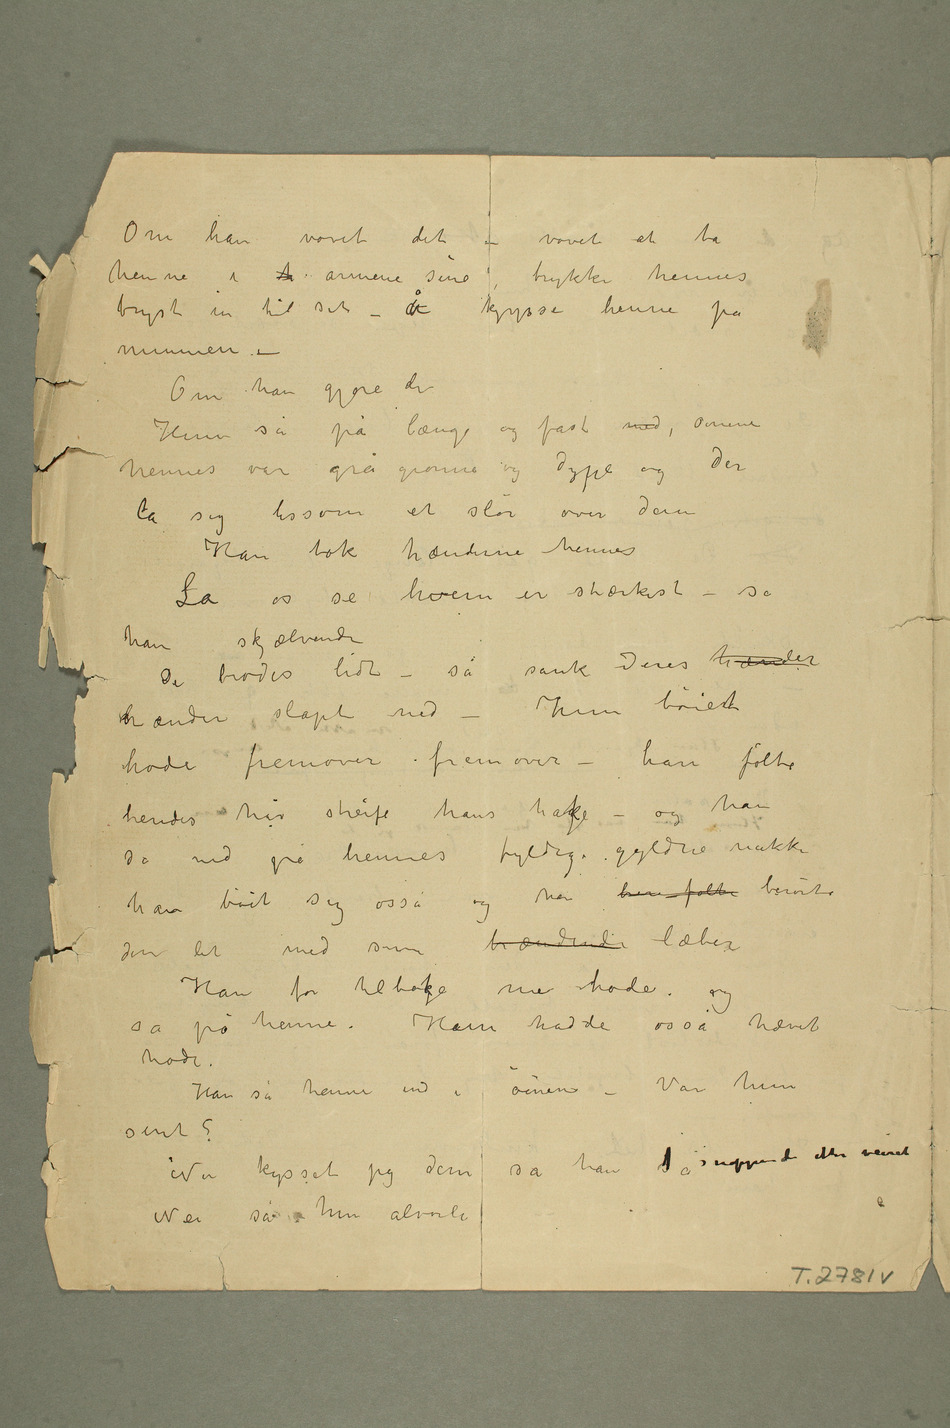 Om han vovet det – vovet at ta
henne i armene sine, trykke hennes
bryst in til set – å kysse henne på
munnen –
Om han gjore de
Hun så på længe og fast ned, öinene
hennes var grå grönne og dype og der
la sig lissom et slör over dem
Han tok hænderne hennes
La os se hvem er stærkest – sa
han skjælvende
De brödes lidt – så sank deres hænder
hænder slapt ned – Hun böiet
hode fremover fremover – han fölte
hendes hår streife hans hake – og han
så ned på hennes fyldige gyldne nakke
han böit sig osså og han hen fölte berörte
den let med sine brændende læber
Han for tilbake me hode. og
så på henne. Hun hadde osså hævet
hode.
Han så henne ind i öinene – Var hun
sint?
Nu kysset jeg dem sa han så snappende etter veiret
Nei sa hun alvorli
T.2781v